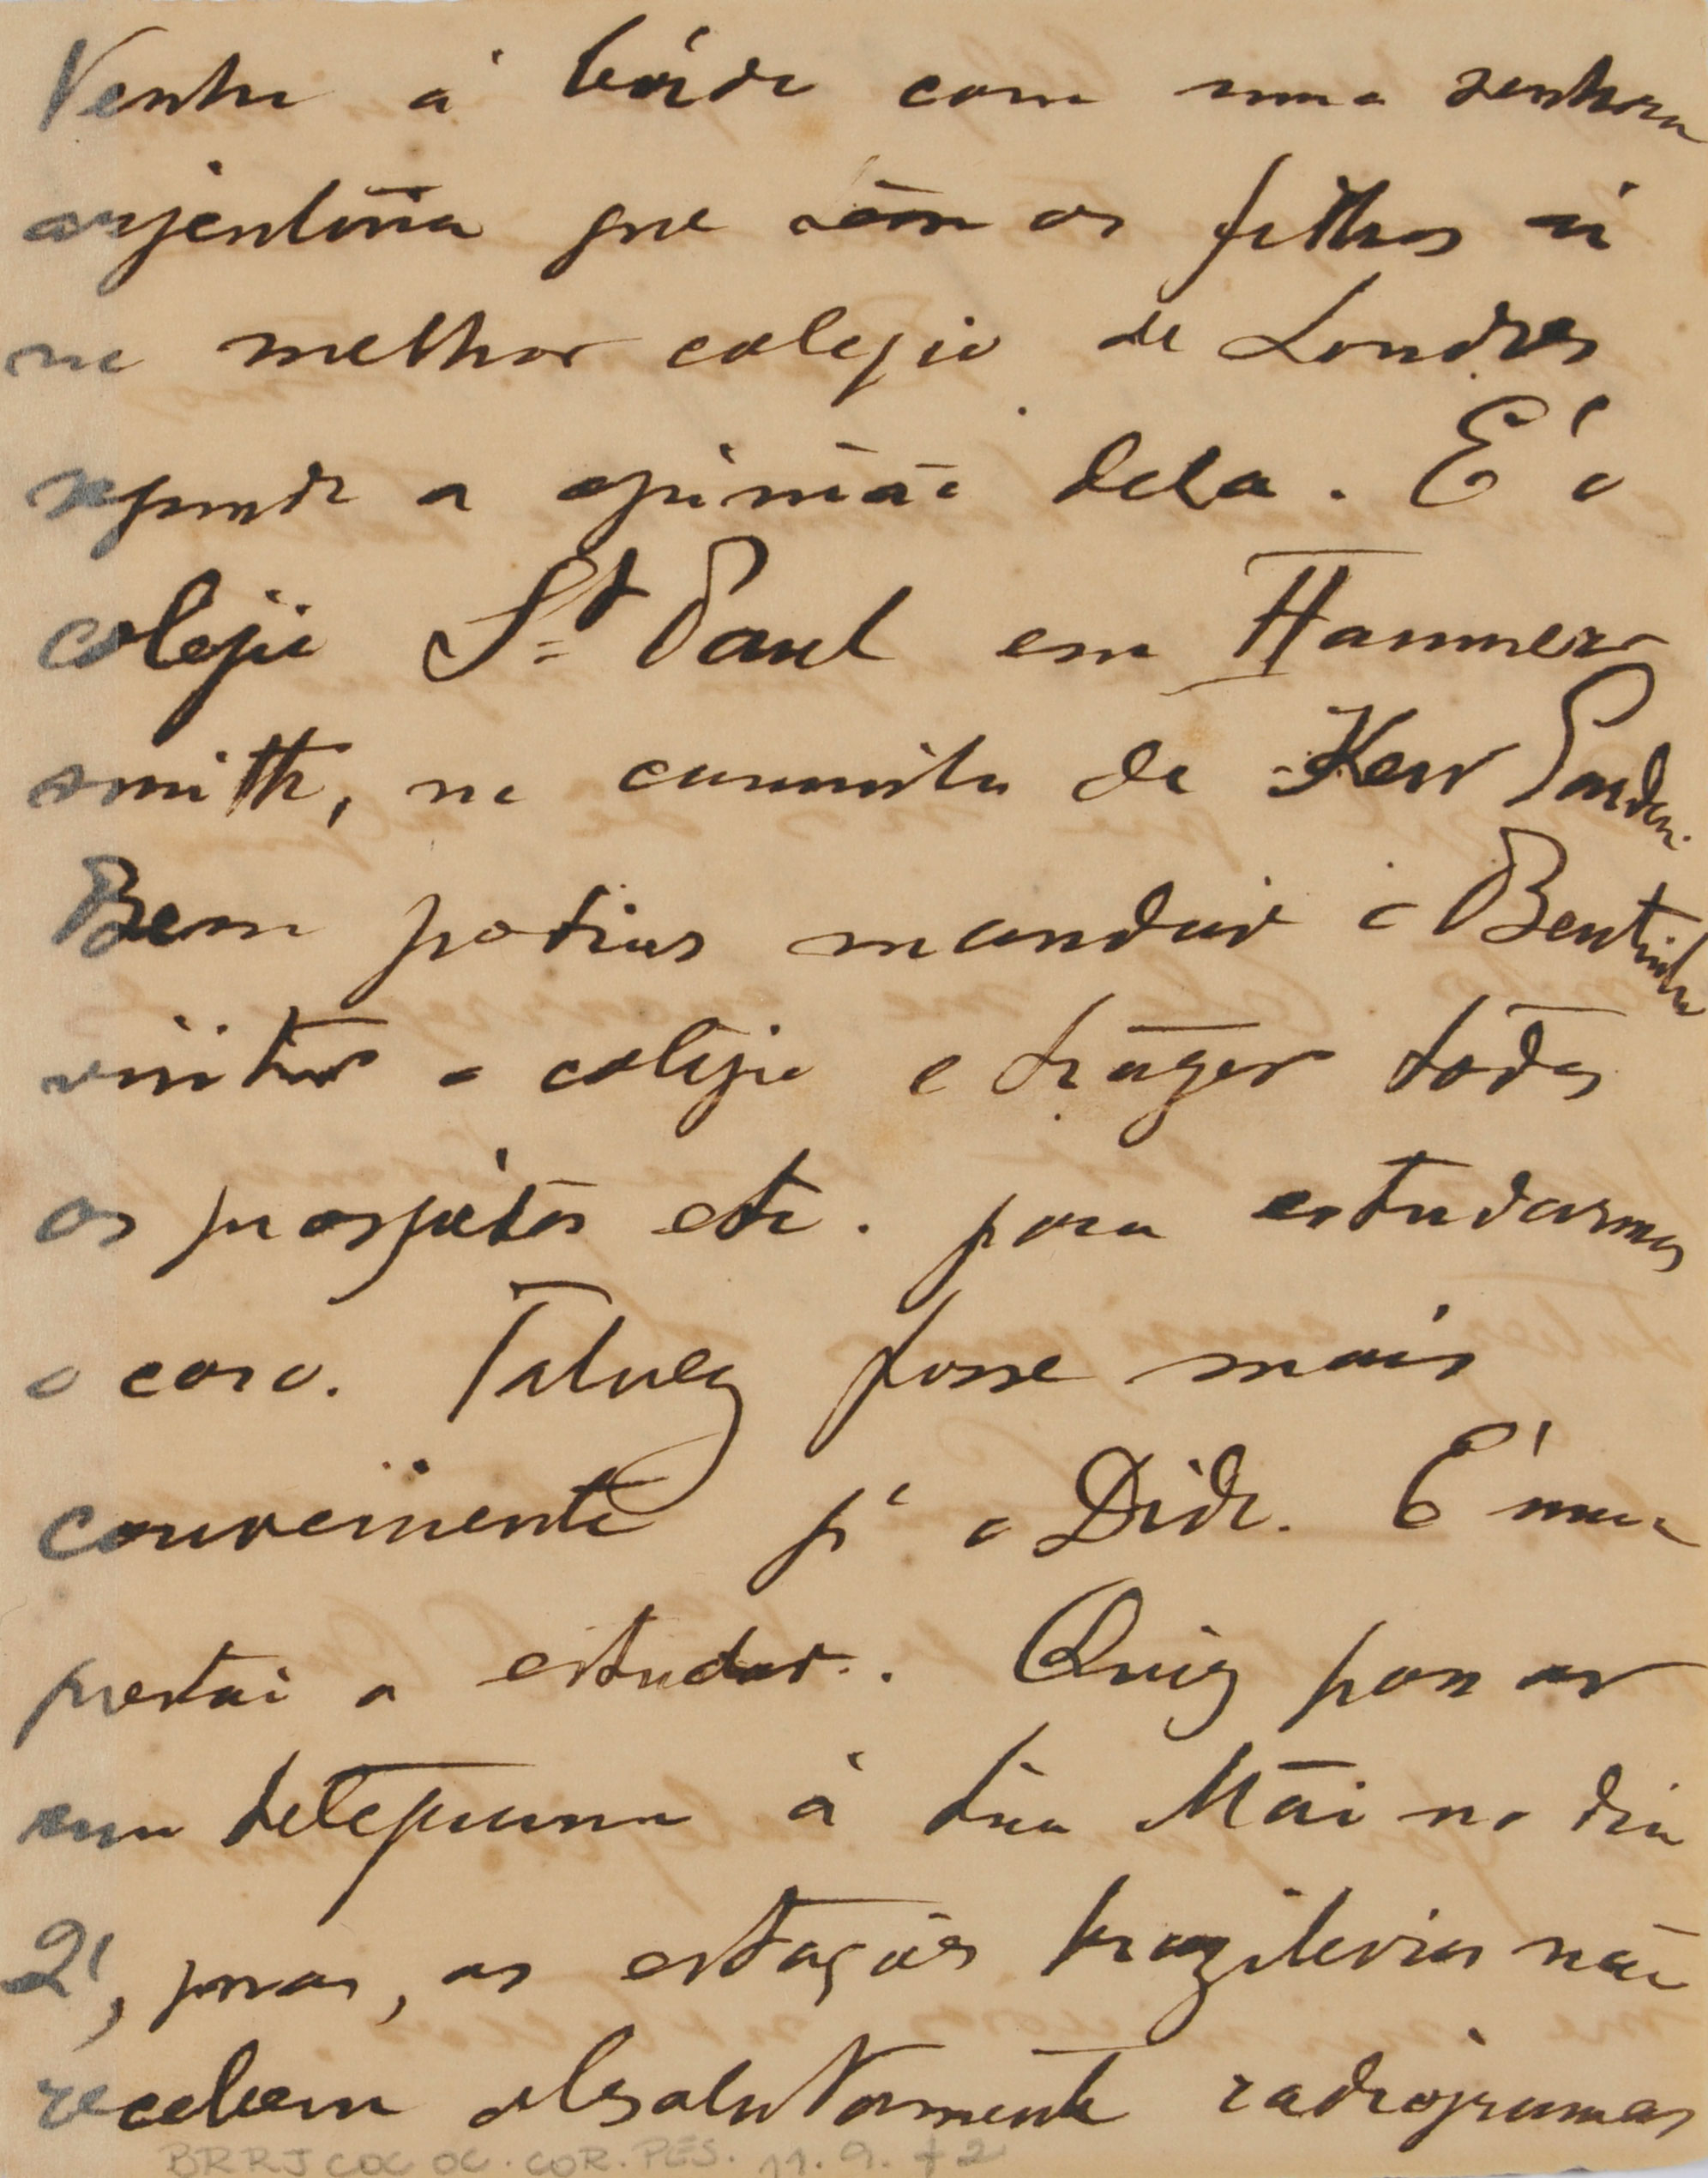 Venho á bórdo com uma senhora
arjentina que tem os filhos ai
no melhor colejio de Londres
segundo a opinião dela. É o
colejio St Paul em Hammers
smith, no caminho de Kew Garden.
Bem podias mandar o Bentinho
visitar o colejio e trazer todos
os prospétos etc. para estudarmos
o caso. Talvez fosse mais
conveniente pª o Dido. É uma
a estudar. Quiz passar
um telegrama á tua Mãi no dia
2, mas, as estações brazileiras não
recebem absolutamente radiogramas
BRRJCOC OC.COR.PES. 11.9. f2